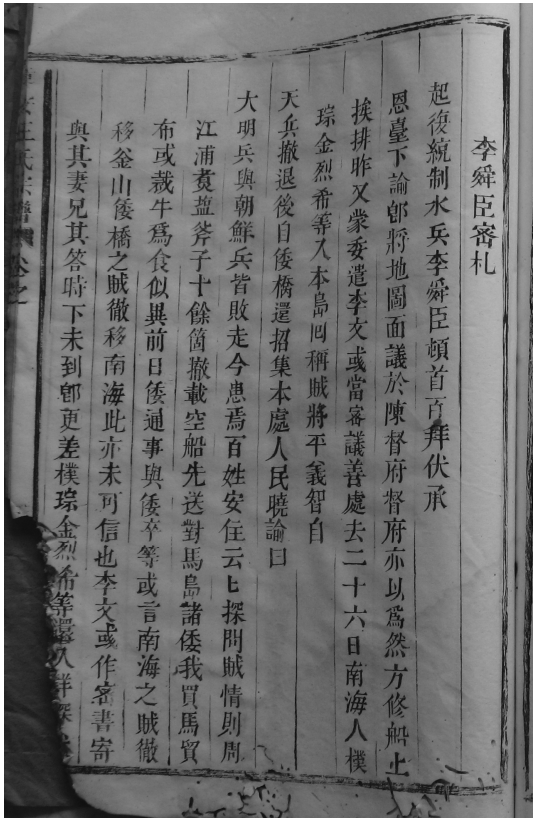 李舜臣密札
起復統制水兵李舜臣頓首百拜伏承
恩臺下諭卽將地圖面議於陳督府督府亦以爲然方修船上
挨排昨又蒙委遣李文彧當密議善處去二十六日南海人樸
琮金烈希等入本島囘稱賊將平義智自
天兵撤退後自倭橋還招集本處人民曉諭曰
大明兵與朝鮮兵皆敗走今患焉百姓安住云匕探問賊情則周
江浦煑盐斧子十餘箇撤載空船先送對馬島諸倭我買馬貿
布或裁牛爲食似異前日倭通事與倭卒等或言南海之賊徹
移釡山倭橋之賊徹移南海此亦未可信也李文彧作密書寄
與其妻兄其答時下未到卽更差樸琮金烈希等還入詳探
王氏宗譜 卷之